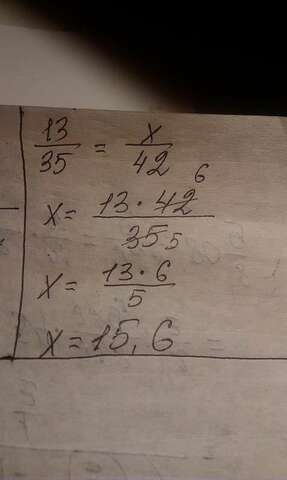 13/35 = x/42
x = 13·42 6/35 5
x = 13·6/5
x = 15,6